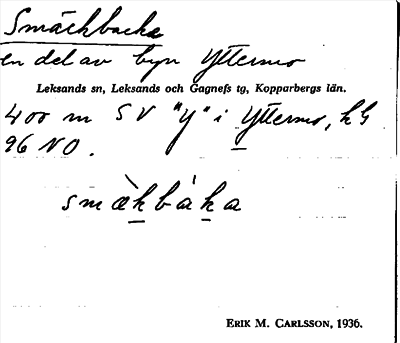 Smäckbacka
en del av byn Yttermo
Leksands sn, Leksands och Gagnefs tg, Kopparbergs län.
400 m SV "Y" i Yttermo, kG
96 NO.
smæ̀kbáka
ERIK M. CARLSSON, 1936.